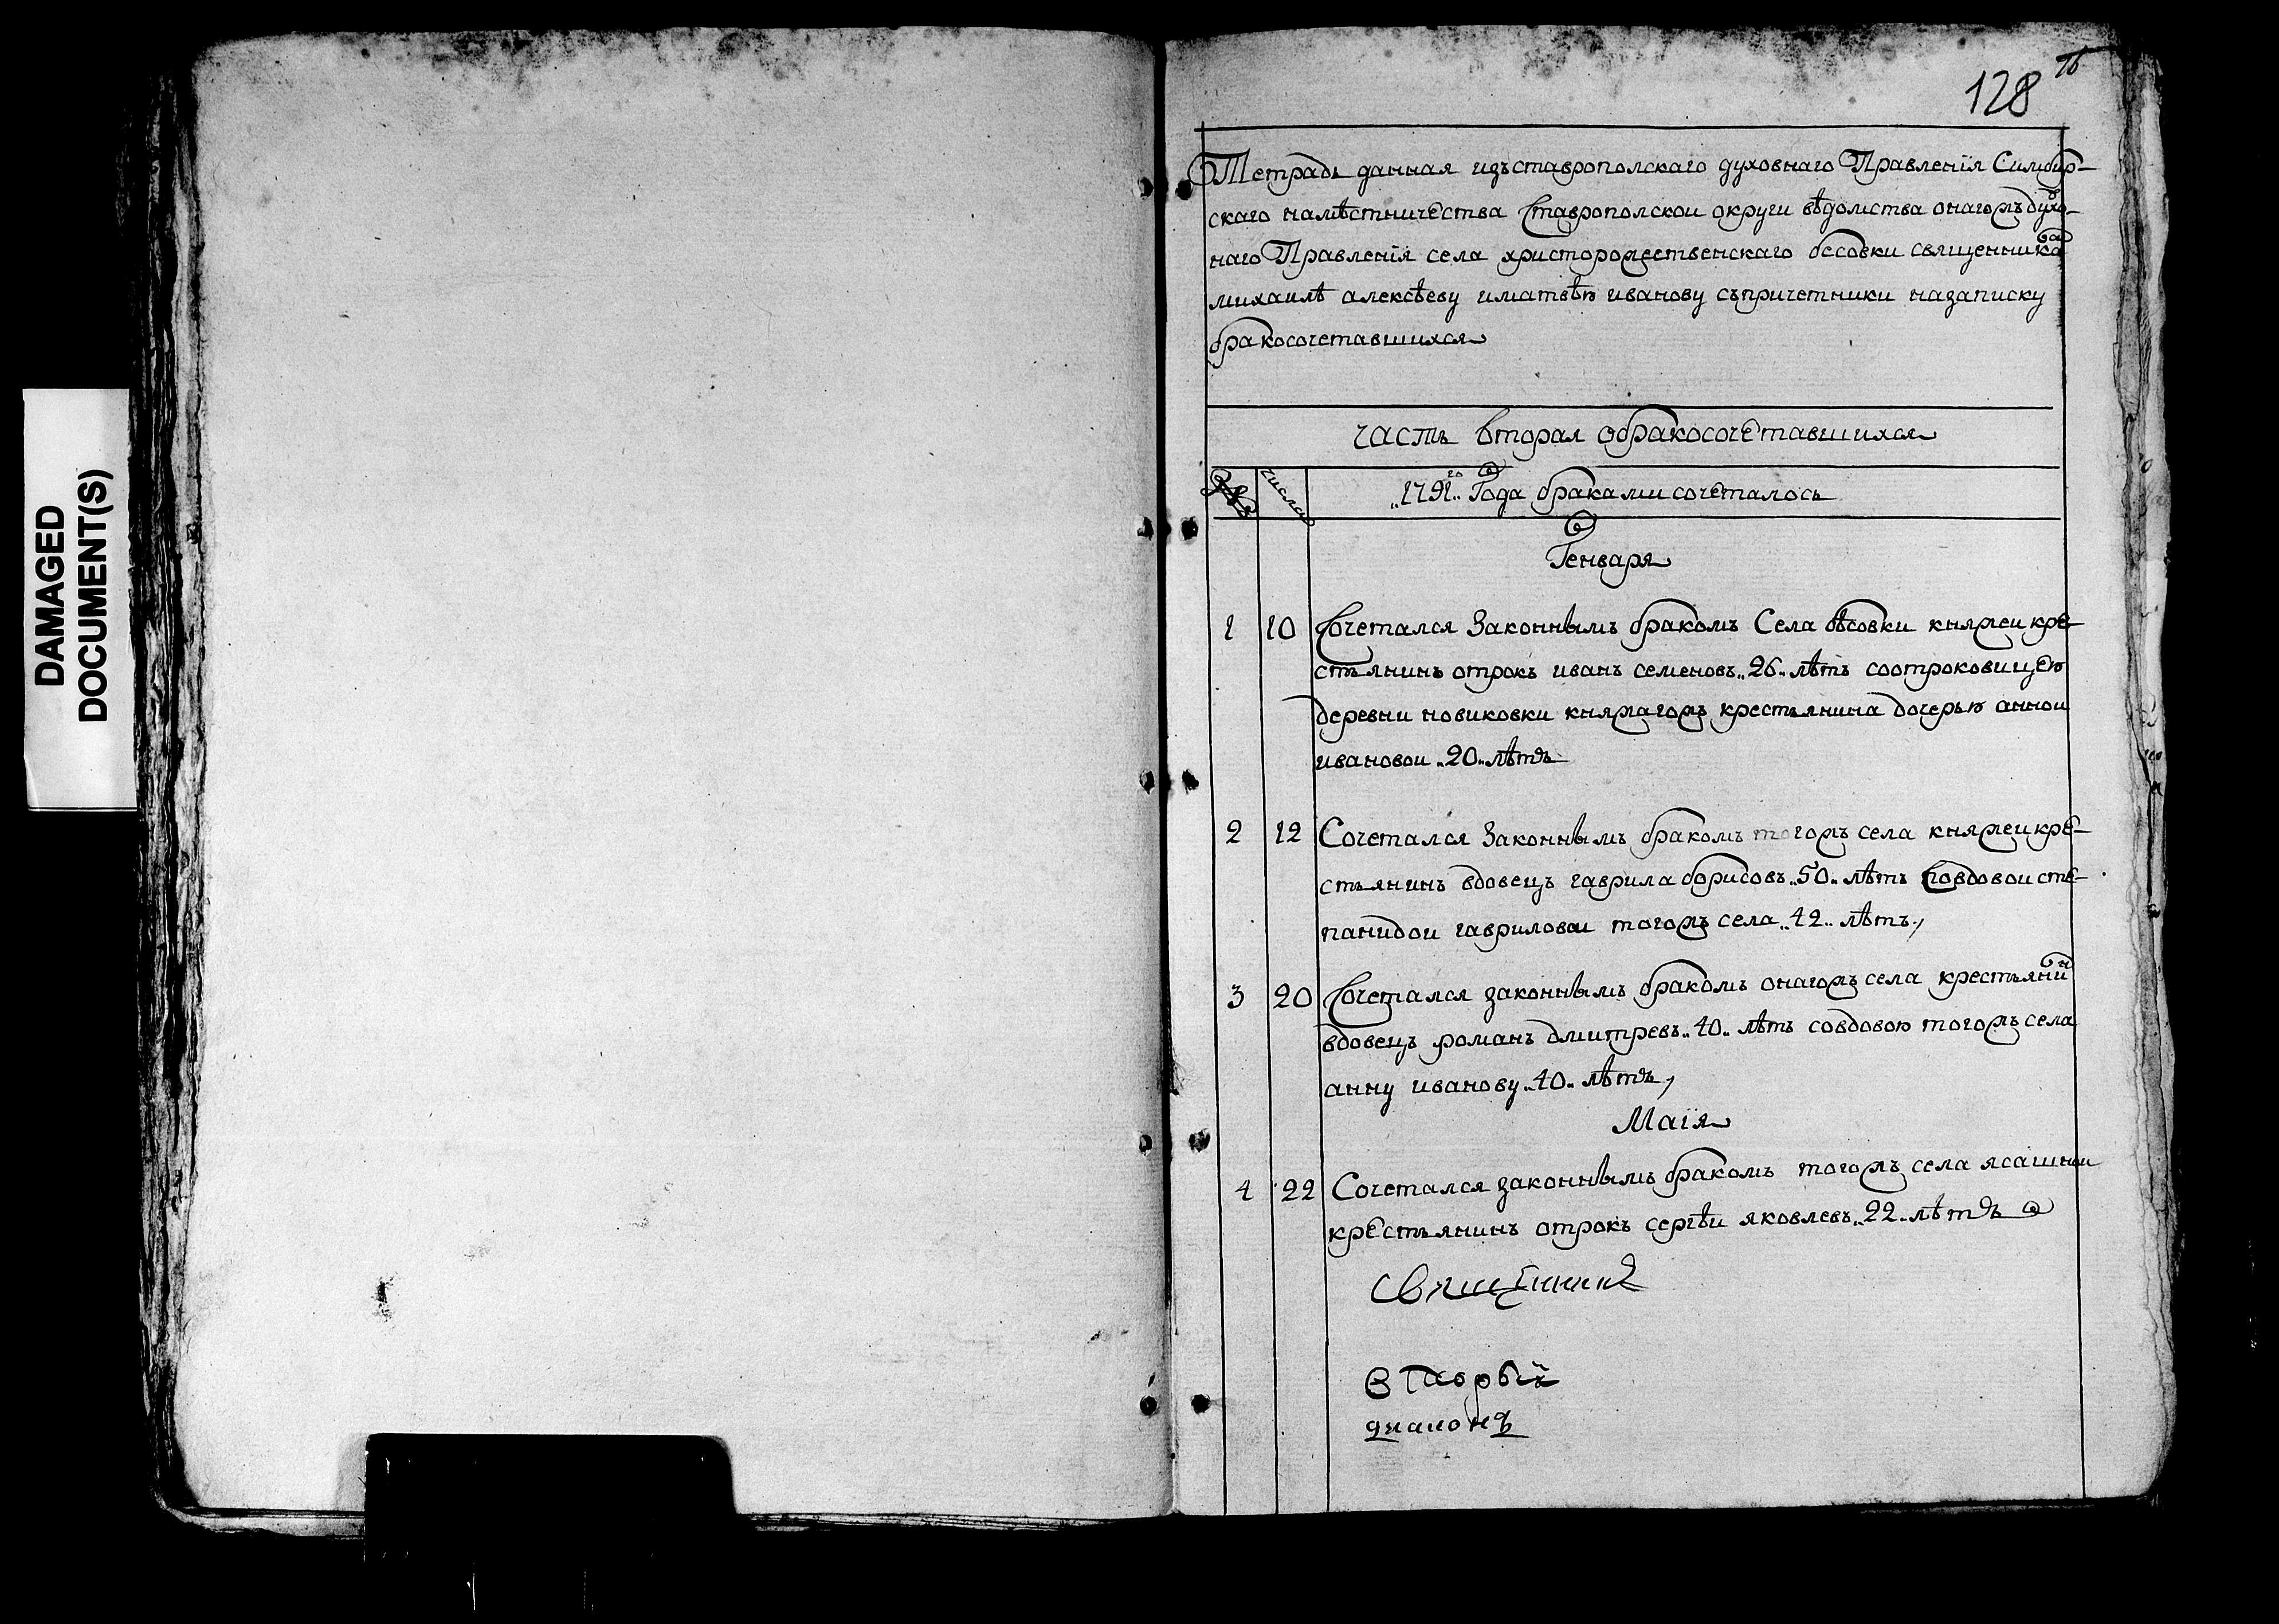 DAMAGED
DOCUMENT(S)
128
Тетрадь данная изъставрополскаго духовнаго Правленїя Симбир-
скаго намѣстничества ставрополскои округи вѣдомства онагожъ духов-
наго Правленїя села христорождественскаго бесовки священникам
михаилѣ алексѣеву иматвѣю иванову съпричетники назаписку
бракосочетавшихся
часть вторая обракосочетавшихся
число
„1791„го Года браками сочеталось
Генваря
1 10 Сочетался Законнымъ бракомъ Села бѣсовки княжеи кре-
стьянинъ отрокъ иванъ семеновъ „26„ лѣтъ соотроковицею
деревни новиковки княжагожъ крестьянина дочерью анной
ивановои „20„ лѣтъ
2 12 Сочетался Законнымъ бракомъ тогожъ села княжеи кре-
стьянинъ вдовецъ гаврила борисовъ „50„ лѣтъ совдовои сте-
панидои гавриловои тогожъ села „42„ лѣтъ,
3 20 Сочетался законнымъ бракомъ онагожъ села крестьянин
вдовецъ романъ дмитревъ „40„ лѣтъ совдовою тогожъ села
анну иванову „40„ лѣтъ,
Маїя
4 22 Сочетался законнымъ бракомъ тогожъ села ясашнои
крестьянинъ отрокъ сергѣи яковлевъ „22„ лѣтъ
священникъ
вторый
диаконъ